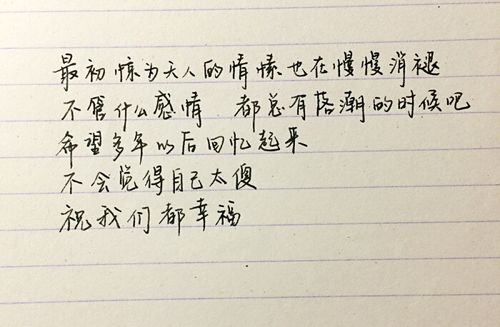 最初惊为天人的情愫也在慢慢消褪
不管什么感情 都总有落潮的时候吧
希望多年以后回忆起来
不会觉得自己太傻
祝我们都幸福